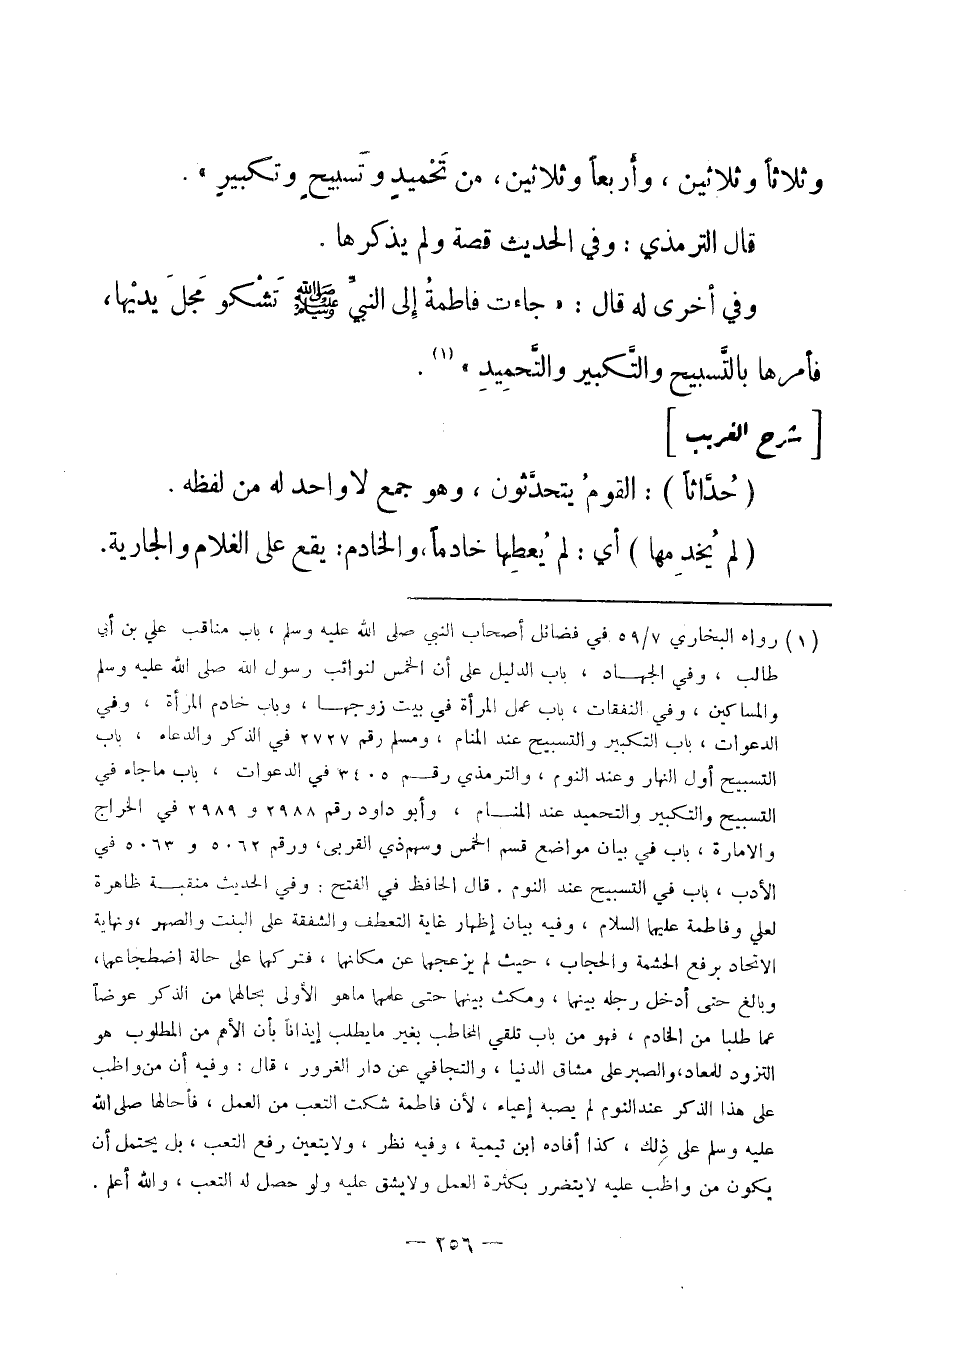 وثلاثاً وثلاثين ، وأربعاً وثلاثين، من تَحْميدٍ وتَسبيحٍ وتكبيرٍ » .
قال الترمذي : وفي الحديث قصة ولم يذكرها .
وفي أخرى له قال : « جاءت فاطمةُ إلى النبيِّ ﷺ تَشْكو مَجلَ يديْها،
فأمرها بالتَّسبيح والتَّكبير والتَّحمِيدِ » (١) .
[ شرح الغريب ]
( حُدَّاثاً ) : القومُ يتحدَّثون ، وهو جمع لاواحد له من لفظه .
( لم يُخدِمها ) أي : لم يُعطِها خادماً،والخادم: يقع على الغلام والجارية.
(١) رواه البخاري ٥٩/٧ في فضائل أصحاب النبي صلى الله عليه وسلم ، باب مناقب علي بن أبي
طالب ، وفي الجهـاد ، باب الدليل على أن الخمس لنوائب رسول الله صلى الله عليه وسلم
والمساكين ، وفي النفقات ، باب عمل المرأة في بيت زوجهـا ، وباب خادم المرأة ، وفي
الدعوات ، باب التكبير والتسبيح عند المنام ، ومسلم رقم ٢٧٢٧ في الذكر والدعاء ، باب
التسبيح أول النهار وعند النوم ، والترمذي رقـم ٣٤٠٥ في الدعوات ، باب ماجاء في
التسبيح والتكبير والتحميد عند المنـام ، وأبو داود رقم ٢٩٨٨ و ٢٩٨٩ في الخراج
والامارة ، باب في بيان مواضع قسم الخمس وسهم ذي القربى، ورقم ٥٠٦٢ و ٥٠٦٣ في
الأدب ، باب في التسبيح عند النوم . قال الحافظ في الفتح : وفي الحديث منقبـة ظاهرة
لعلي وفاطمة عليها السلام ، وفيه بيان إظهار غاية التعطف والشفقة على البنت والصهر ،ونهاية
الاتحاد برفع الحشمة والحجاب ، حيث لم يزعجها عن مكانها ، فتركها على حالة اضطجاعها،
وبالغ حتى أدخل رجله بينها ، ومكث بينها حتى علمها ماهو الأولى بحالها من الذكر عوضاً
عما طلبا من الخادم ، فهو من باب تلقي المخاطب بغير مايطلب إيذاناً بأن الأهم من المطلوب هو
التزود للمعاد،والصبر على مشاق الدنيا ، والتجافي عن دار الغرور ، قال : وفيه أن من واظب
على هذا الذكر عندالنوم لم يصبه إعياء ، لأن فاطمة شكت التعب من العمل ، فأحالها صلى الله
عليه وسلم على ذلك ، كذا أفاده ابن تيمية ، وفيه نظر ، ولايتعين رفع التعب ، بل يحتمل أن
يكون من واظب عليه لايتضرر بكثرة العمل ولايشق عليه ولو حصل له التعب ، والله أعلم .
— ٢٥٦ —